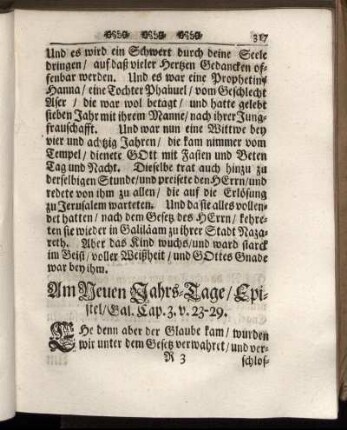 317
Und es wird ein Schwert durch deine Seele
dringen / auf daß vieler Hertzen Gedancken of-
fenbar werden. Und es war eine Prophetin /
Hanna / eine Tochter Phanuel / vom Geschlecht
Aser / die war wol betagt / und hatte gelebt
sieben Jahr mit ihrem Manne / nach ihrer Jung-
frauschafft. Und war nun eine Wittwe bey
vier und achtzig Jahren / die kam nimmer vom
Tempel / dienete GOtt mit Fasten und Beten
Tag und Nacht. Dieselbe trat auch hinzu zu
derselbigen Stunde / und preisete den HErrn / und
redete von ihm zu allen / die auf die Erlösung
zu Jerusalem warteten. Und da sie alles vollen-
det hatten / nach dem Gesetz des HErrn / kehre-
ten sie wieder in Galiläam zu ihrer Stadt Naza-
reth. Aber das Kind wuchs / und ward starck
im Geist / voller Weißheit / und GOttes Gnade
war bey ihm.
Am Neuen Jahrs-Tage / Epi-
stel / Gal. Cap. 3. v. 23-29.
EHe denn aber der Glaube kam / wurden
wir unter dem Gesetz verwahret / und ver-
R 3 schlos-